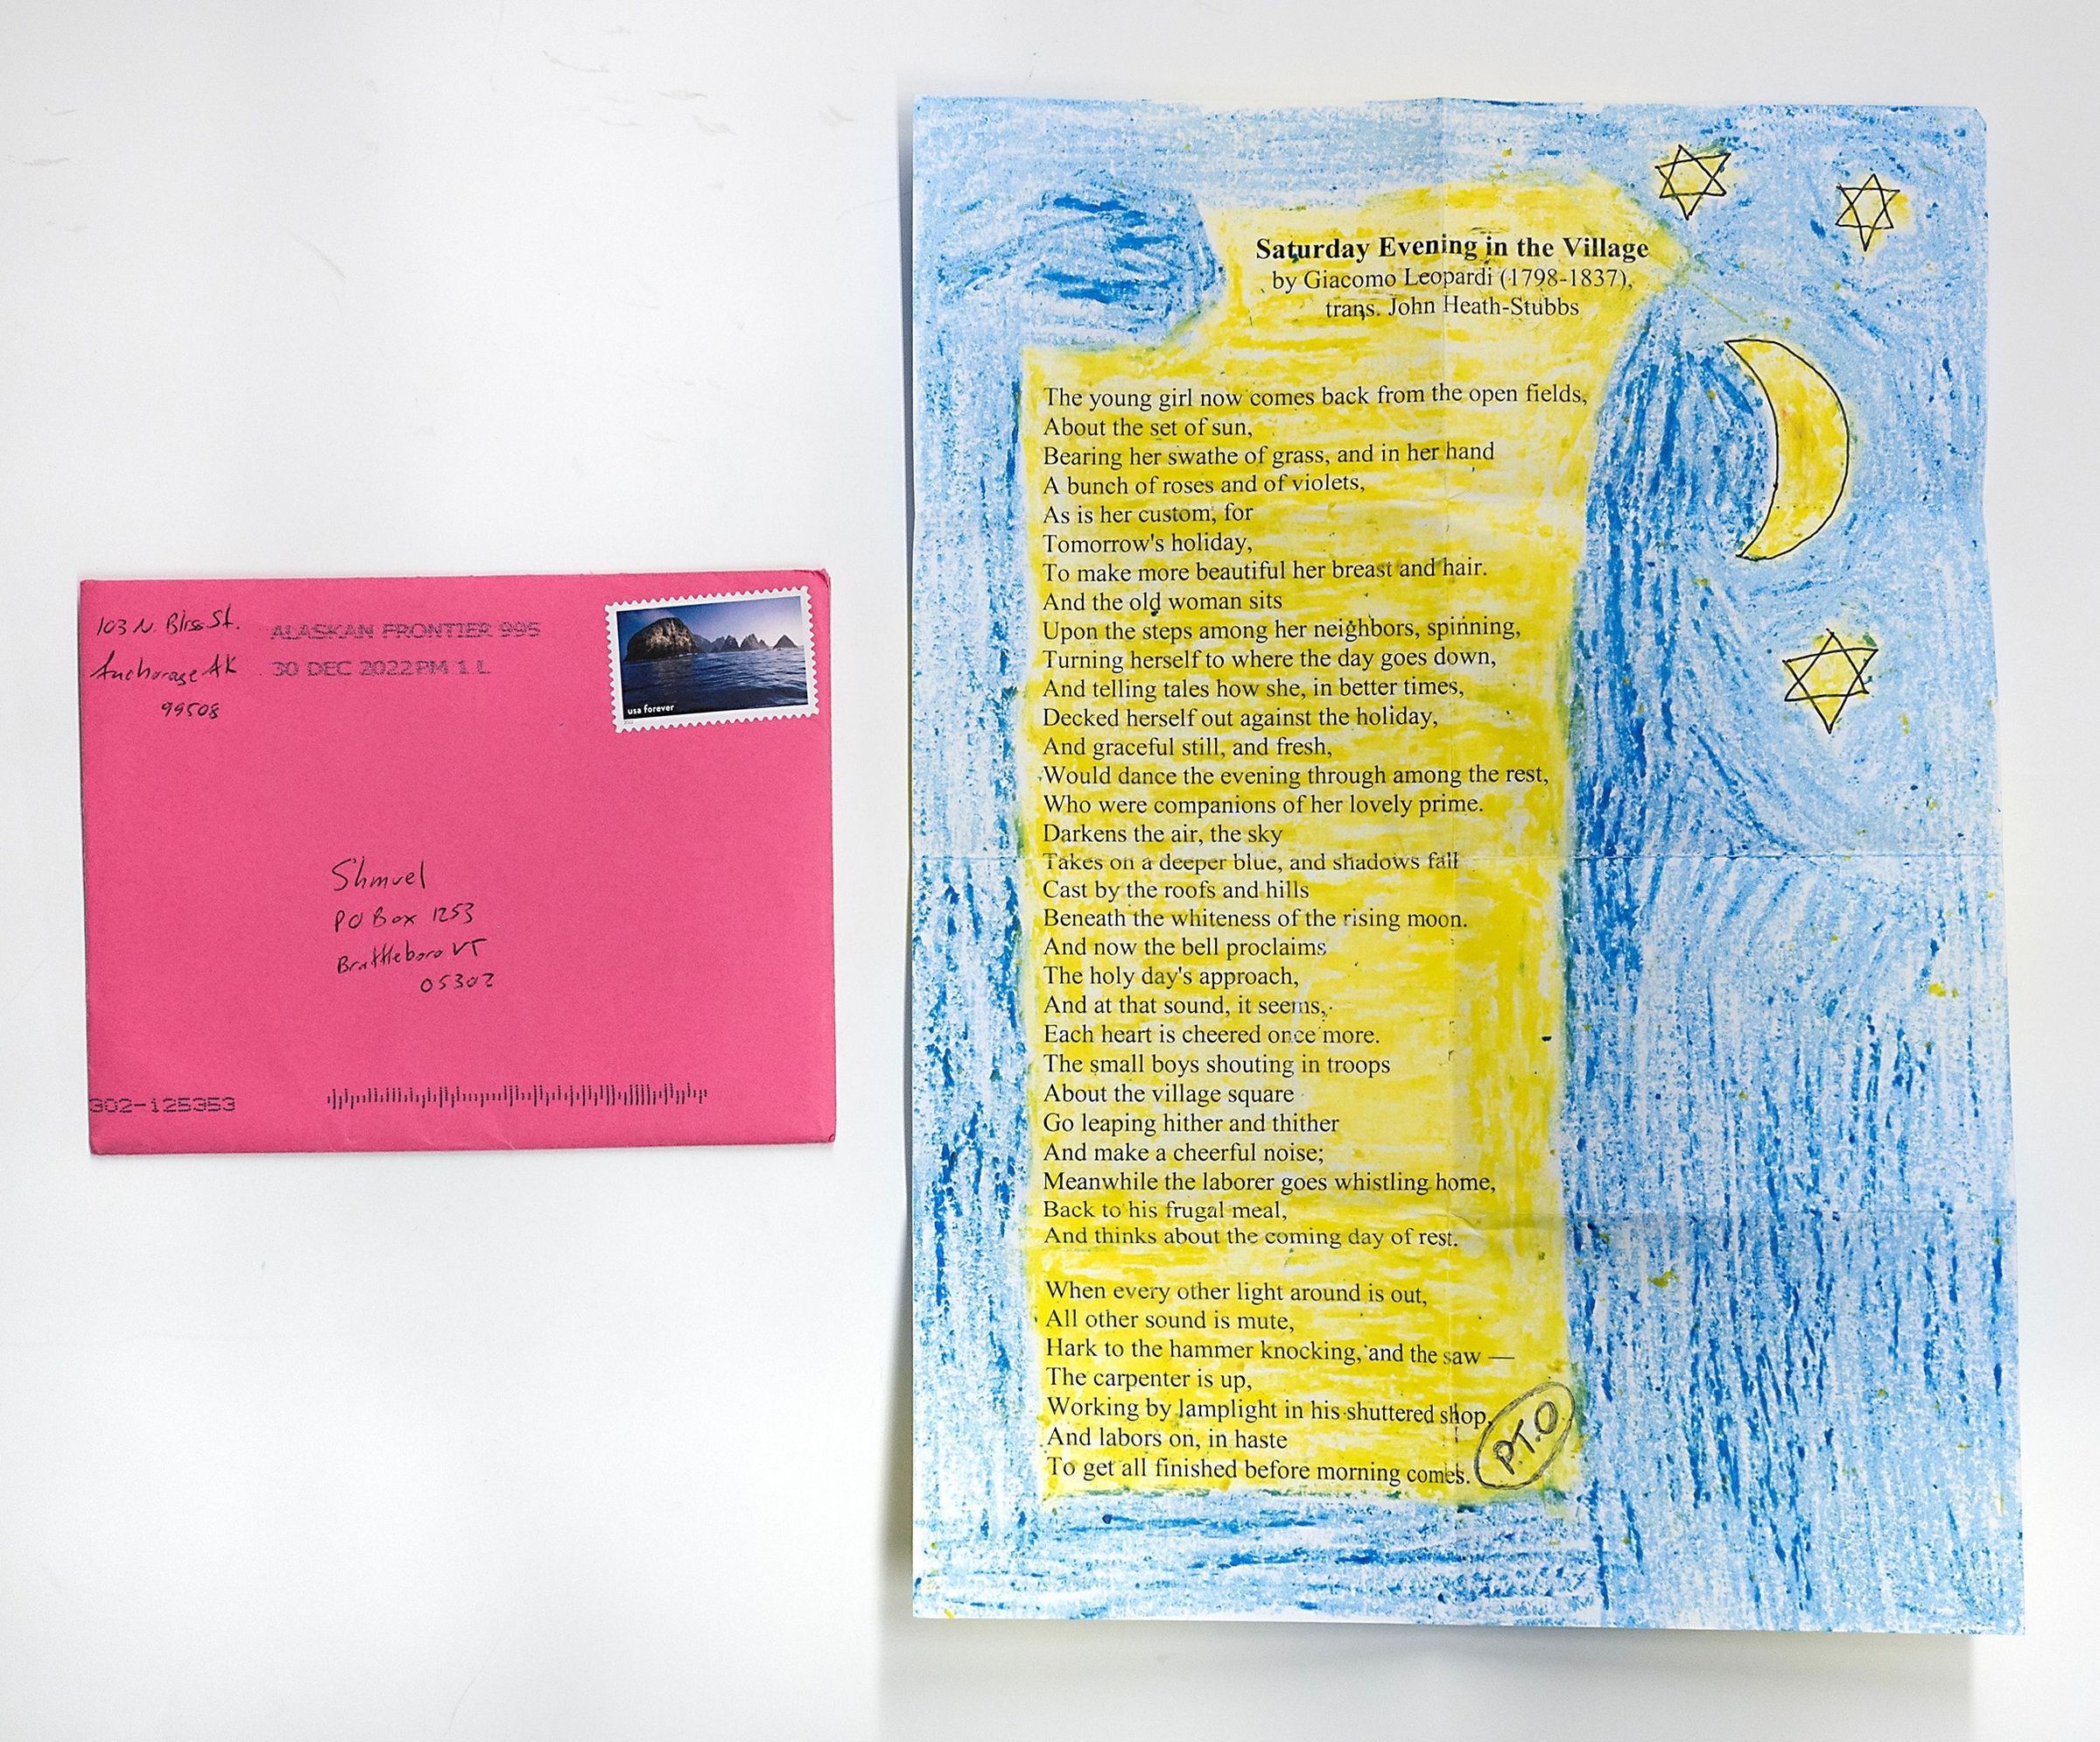 103 N. Bliss St.
Anchorage AK
99508
ALASKAN FRONTIER 995
30 DEC 2022 PM 1 L
usa forever
Shmuel
PO Box 1253
Brattleboro VT
05302
302-125353
Saturday Evening in the Village
by Giacomo Leopardi (1798-1837),
trans. John Heath-Stubbs
The young girl now comes back from the open fields,
About the set of sun,
Bearing her swathe of grass, and in her hand
A bunch of roses and of violets,
As is her custom, for
Tomorrow's holiday,
To make more beautiful her breast and hair.
And the old woman sits
Upon the steps among her neighbors, spinning,
Turning herself to where the day goes down,
And telling tales how she, in better times,
Decked herself out against the holiday,
And graceful still, and fresh,
Would dance the evening through among the rest,
Who were companions of her lovely prime.
Darkens the air, the sky
Takes on a deeper blue, and shadows fall
Cast by the roofs and hills
Beneath the whiteness of the rising moon.
And now the bell proclaims
The holy day's approach,
And at that sound, it seems,
Each heart is cheered once more.
The small boys shouting in troops
About the village square
Go leaping hither and thither
And make a cheerful noise;
Meanwhile the laborer goes whistling home,
Back to his frugal meal,
And thinks about the coming day of rest.
When every other light around is out,
All other sound is mute,
Hark to the hammer knocking, and the saw —
The carpenter is up,
Working by lamplight in his shuttered shop,
And labors on, in haste
To get all finished before morning comes.
P.T.O